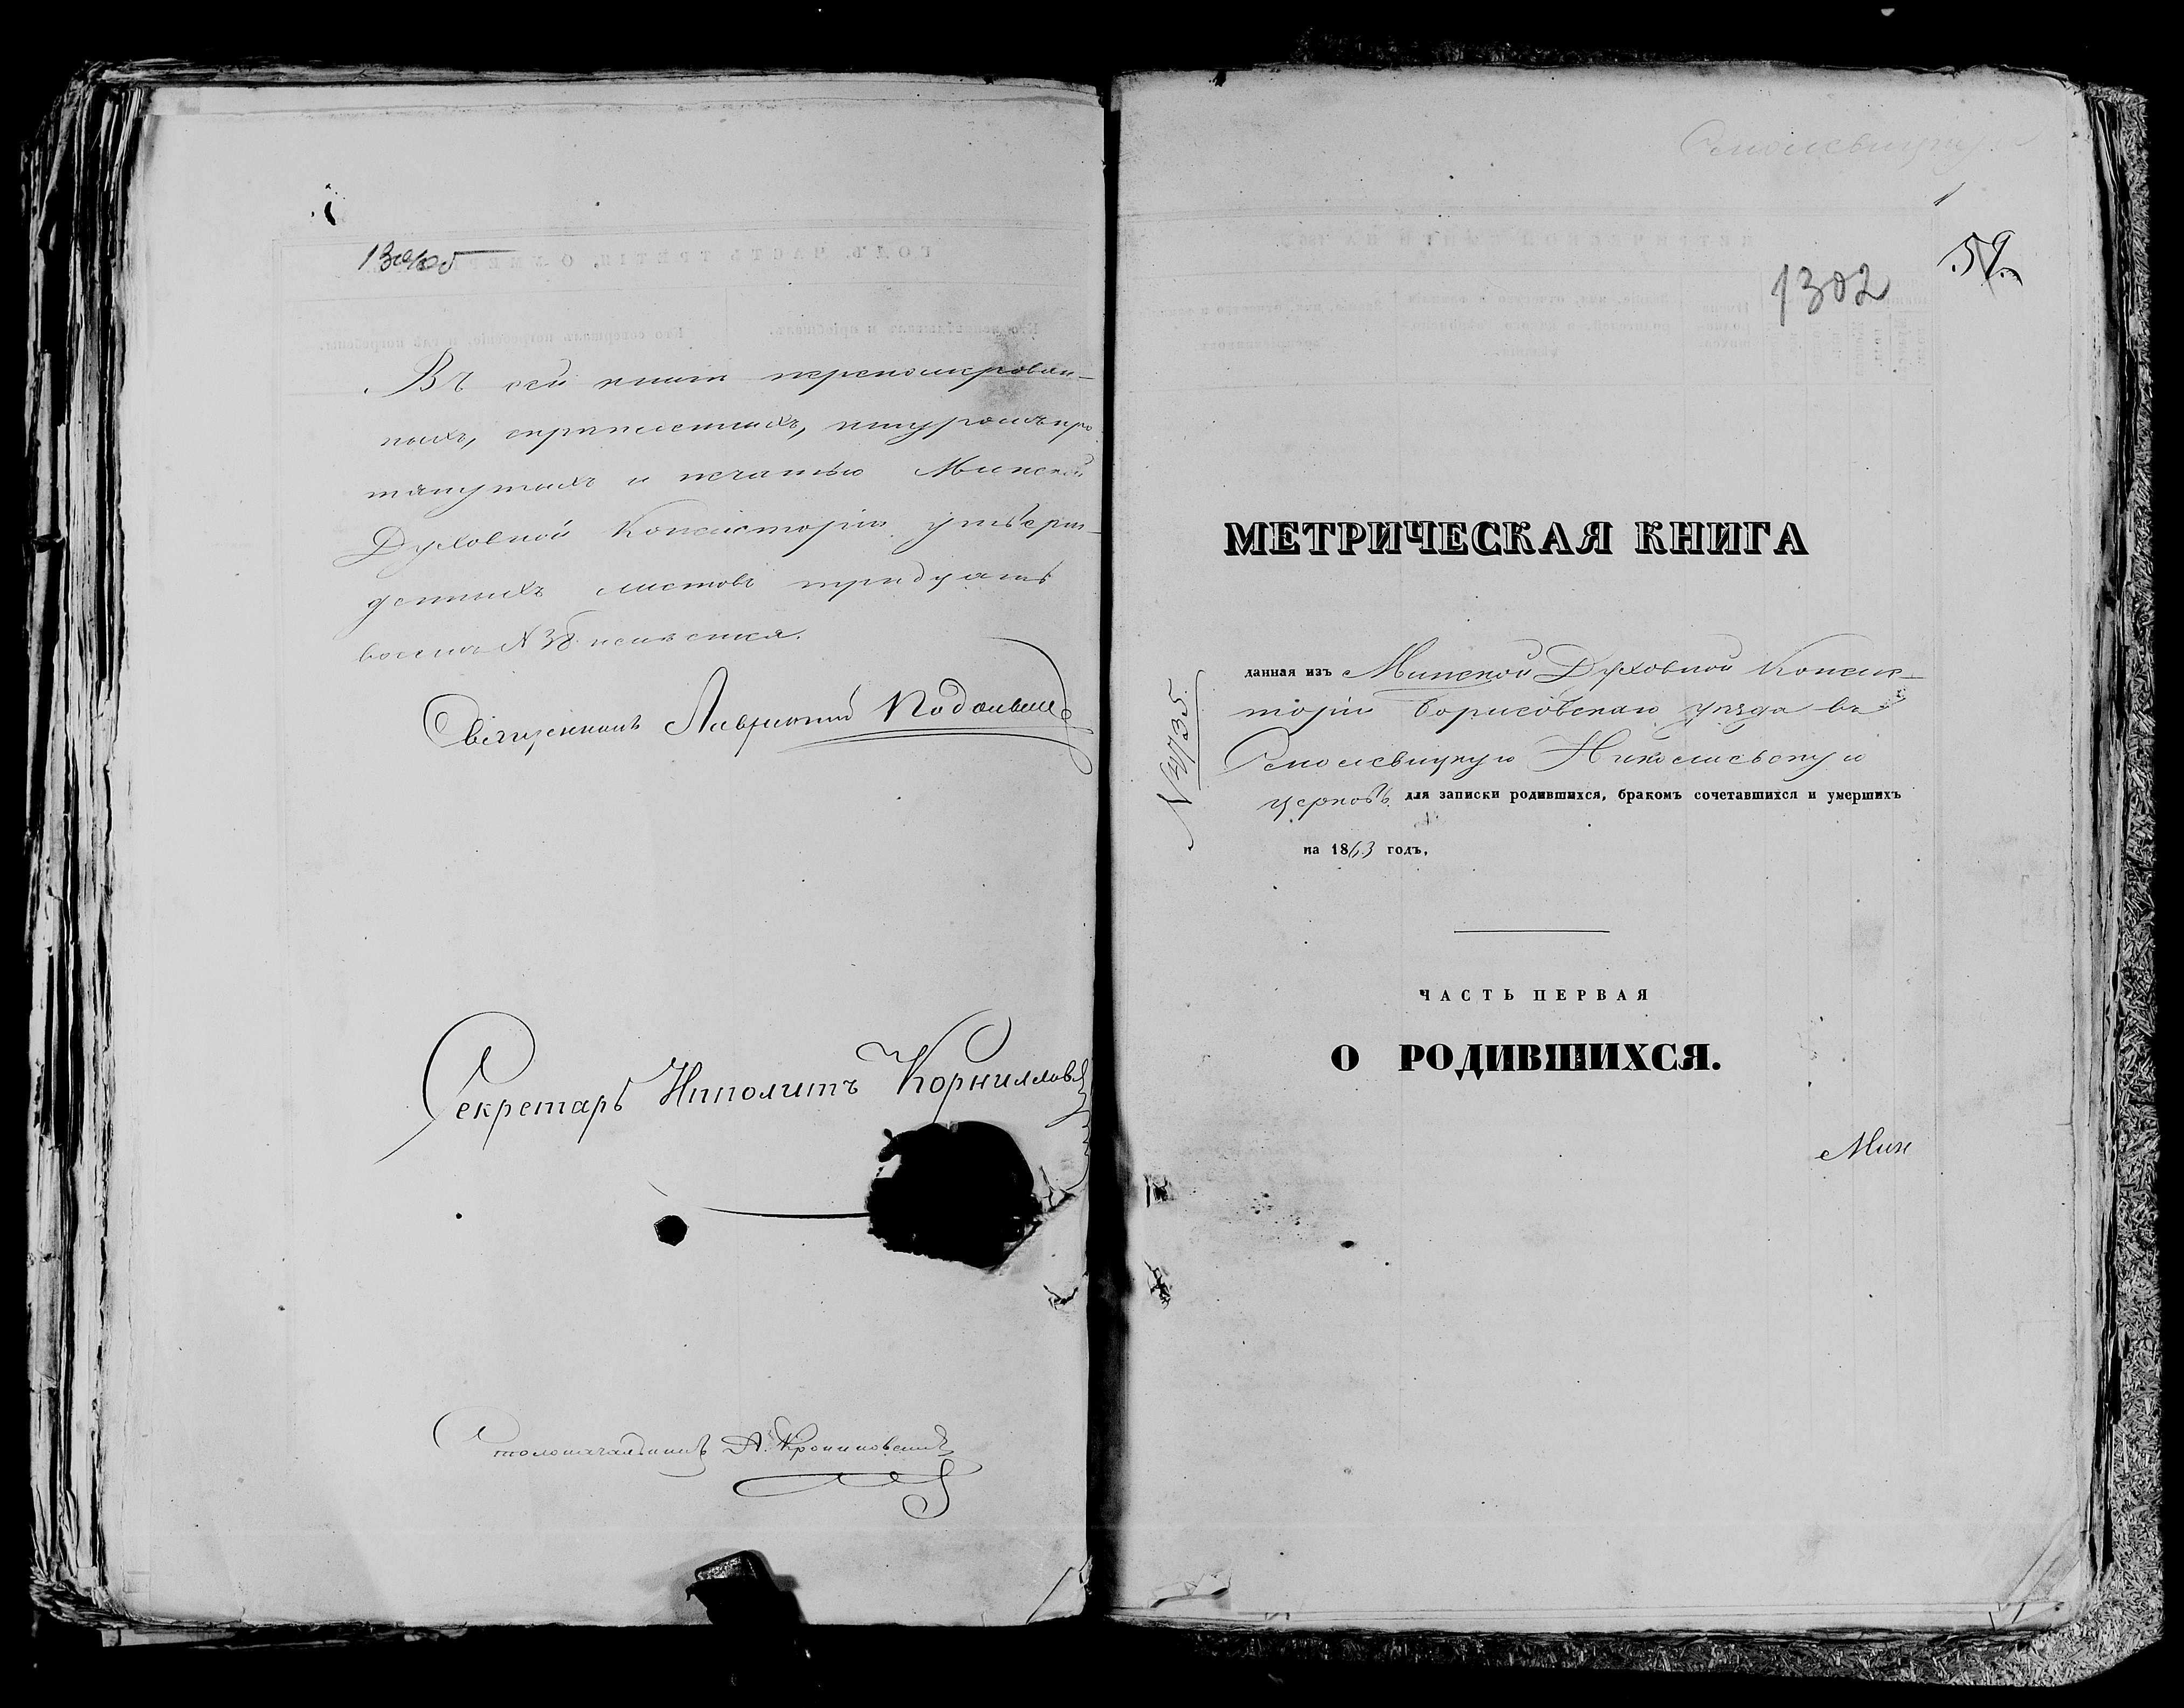 Въ сей книгѣ перенумерован-
ныхъ, скрѣпленныхъ, шнуромъ про
тянутыхъ и печатью Минской
Духовной Консисторіи утверж-
денныхъ листовъ тридцать
восемь N 38 имѣется.
Священникъ Лаврентій
Секретарь Ипполитъ Корниллов
Столоначальникъ А.
1302
59.
МЕТРИЧЕСКАЯ КНИГА
данная изъ Минской Духовной Консис-
торіи Борисовскаго уѣзда въ
Смолевицкую Николаевскую
церковь для записки родившихся, бракомъ сочетавшихся и умершихъ
на 1863 годъ.
N 4735.
ЧАСТЬ ПЕРВАЯ
О РОДИВШИХСЯ.
Мин